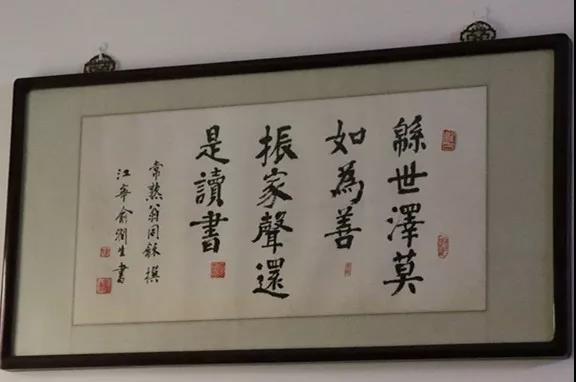 緜世澤莫
如為善
振家聲還
是讀書
常熟翁同龢撰
江寧俞潤生書